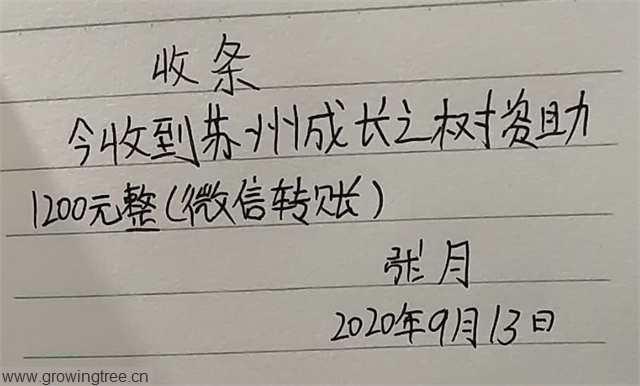 收条
今收到苏州成长之树资助
1200元整(微信转账)
张月
2020年9月13日
www.growingtree.cn